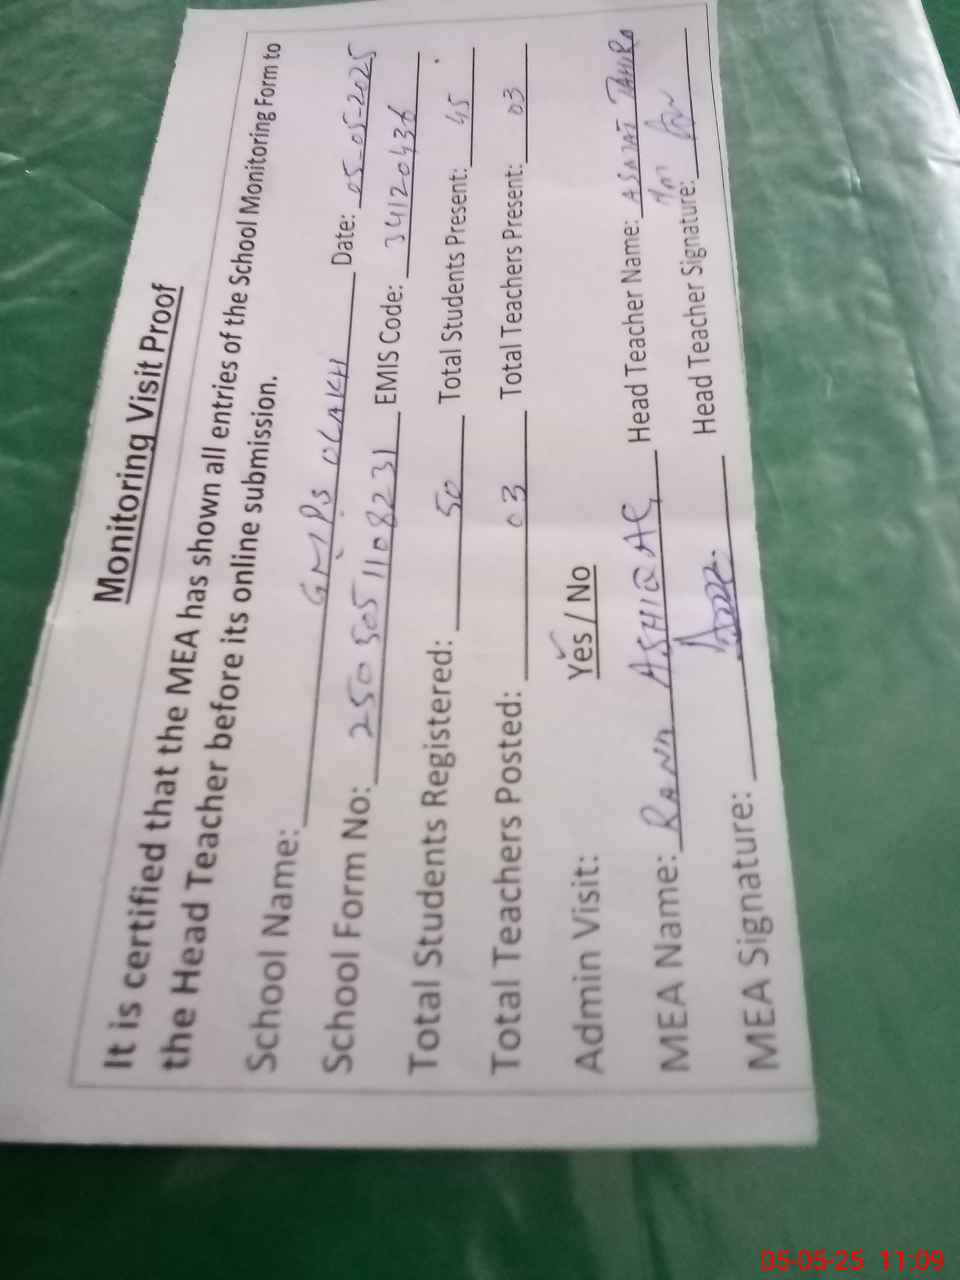 Monitoring Visit Proof
It is certified that the MEA has shown all entries of the School Monitoring Form to
the Head Teacher before its online submission.
School Name: GMPS OLAKH Date: 05-05-2025
School Form No: 2505051108231 EMIS Code: 34120436
Total Students Registered: 50 Total Students Present: 45
Total Teachers Posted: 03 Total Teachers Present: 03
Admin Visit: Yes / No
MEA Name: RANA ASHIQ Head Teacher Name: TAHIRA
MEA Signature: Head Teacher Signature:
05-05-25 11:09